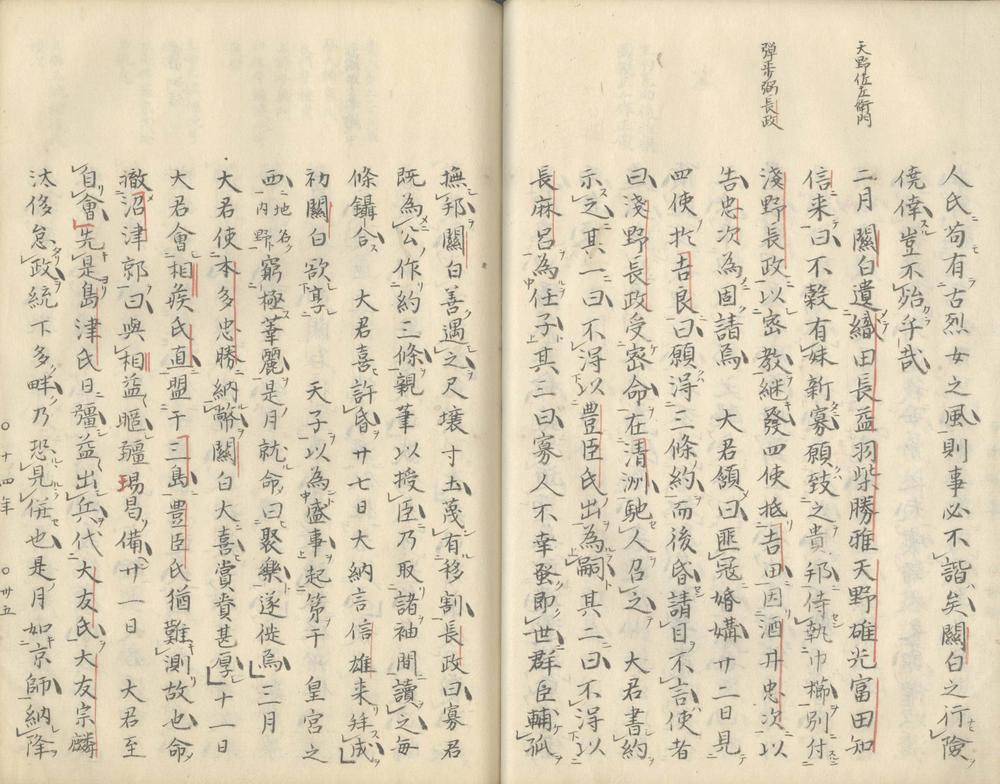 人氏苟有古烈女之風則事必不諧矣關白之行險
僥倖豈不殆乎哉
天野佐左衞門
二月關白遺織田長益羽柴勝雅天野雄光富田知
信来曰不穀有妹新寡願致之貴邦侍執巾櫛別付
彈正弼長政
淺野長政以密教継發四使抵吉田因酒井忠次以
告忠次為固請焉 大君領曰匪冠婚媾廿二日見
四使扵吉良曰願得三條約而後昏請目不言使者
曰淺野長政受密命在清洲馳人召之 大君書約
示之其一曰不得以豊臣氏出為嗣其二曰不得以
長麻呂為任子其三曰寡人不幸蚤即世群臣輔孤
撫邦關白善遇之尺壤寸土蔑有移割長政曰寡君
既為公作約三條親筆以授臣乃取諸袖間讀之毎
條鑷合 大君喜許昏廿七日大納言信雄来拜成
初關白欲享 天子以為盛事起第于 皇宮之
西内野地名窮極華麗是月就命曰聚樂遂徙焉三月
大君使本多忠勝納幣關白大喜賞賚甚厚十一日
大君會相模氏直盟于三島豊臣氏猶難測故也命
撤沼津郭曰與相益暱疆場曷備廿一日 大君至
自會先是島津氏日彊益出兵代大友氏大友宗麟
汰侈怠政統下多畔乃恐見併也是月如京師納降
十四年
卅五